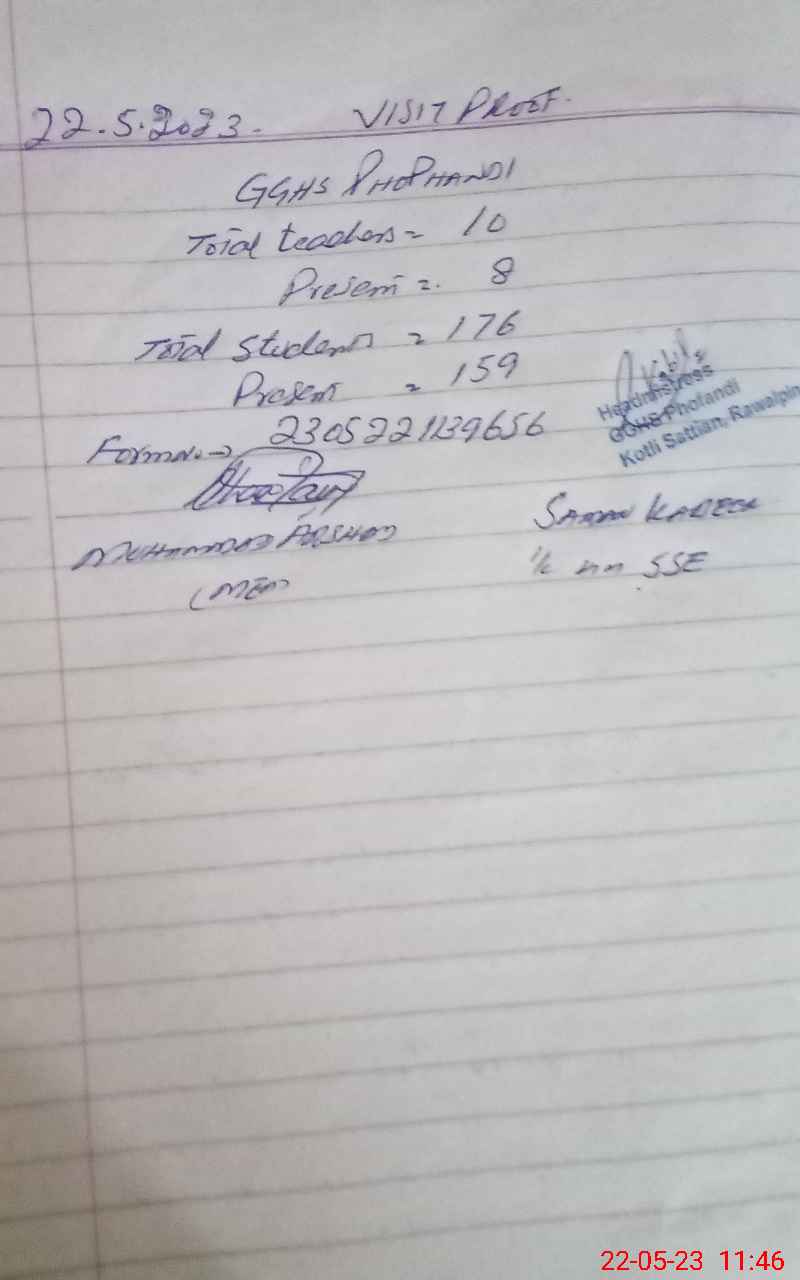 22.5.2023. VISIT PROOF.
GGHS PHOPHANDI
Total teachers = 10
Present = 8
Total Students = 176
Present = 159
Form No. → 2305221139656
Headmistress
GGHS Phofandi
Kotli Sattian, Rawalpin
MUHAMMAD ARSHAD
(MEA)
SAMAN KABEER
I/C HM SSE
22-05-23 11:46